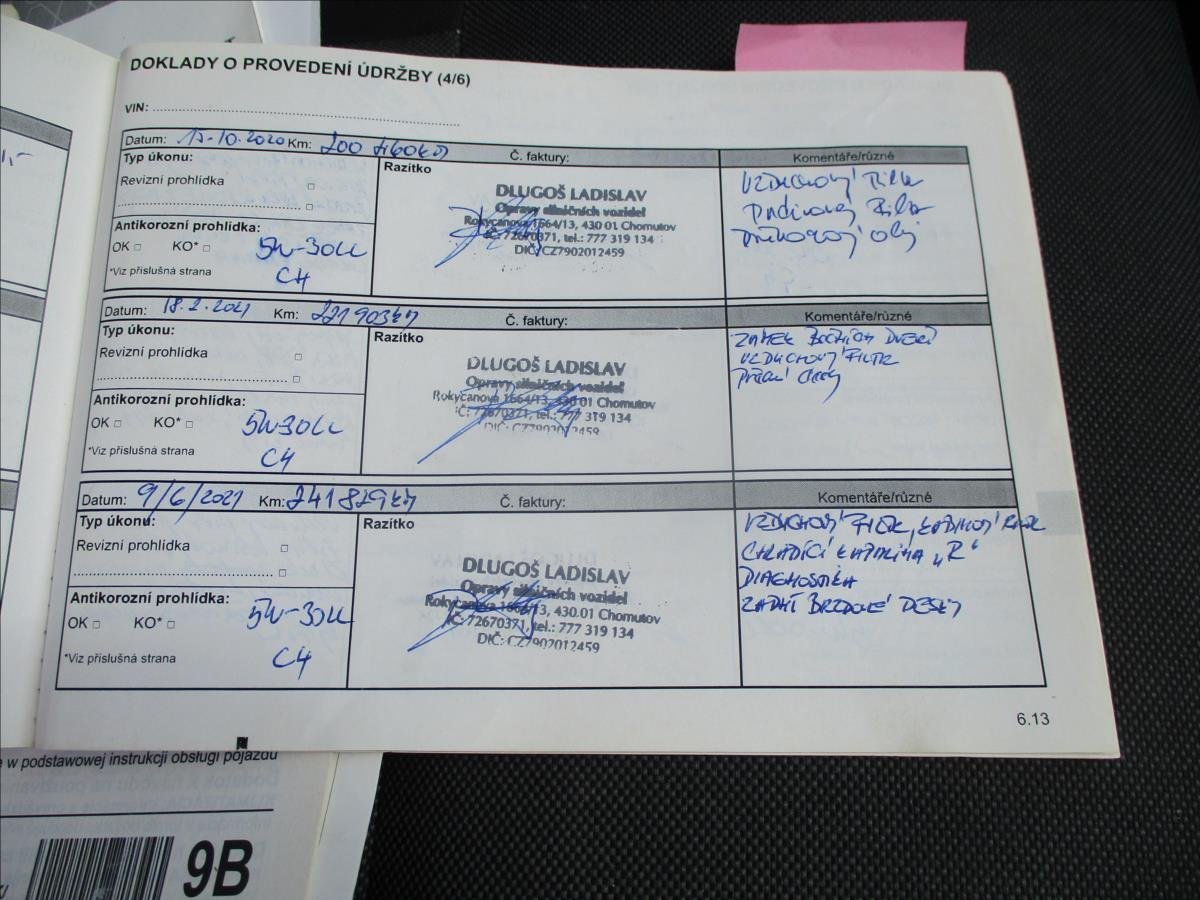 DOKLADY O PROVEDENÍ ÚDRŽBY (4/6)
VIN:
Datum: 15-10.2020 Km: 200 460km
Č. faktury:
Komentáře/různé
Typ úkonu:
Revizní prohlídka
Antikorozní prohlídka:
OK KO*
*Viz příslušná strana
5W-30LL
C4
Razítko
DLUGOŠ LADISLAV
Opravy silničních vozidel
Rokycanova 1664/13, 430 01 Chomutov
IČ: 72670371, tel.: 777 319 134
DIČ: CZ7902012459
VZDUCHOVÝ
Datum: 18.2.2021 Km: 221903km
Č. faktury:
Komentáře/různé
Typ úkonu:
Revizní prohlídka
Antikorozní prohlídka:
OK KO*
*Viz příslušná strana
5W-30LL
C4
Razítko
DLUGOŠ LADISLAV
Opravy silničních vozidel
Rokycanova 1664/13, 430 01 Chomutov
IČ: 72670371, tel.: 777 319 134
DIČ: CZ7902012459
ZÁMEK BOČNÍCH DVEŘÍ
VZDUCHOVÝ FILTR
Datum: 9/6/2021 Km: 241829km
Č. faktury:
Komentáře/různé
Typ úkonu:
Revizní prohlídka
Antikorozní prohlídka:
OK KO*
*Viz příslušná strana
5W-30LL
C4
Razítko
DLUGOŠ LADISLAV
Opravy silničních vozidel
Rokycanova 1664/13, 430 01 Chomutov
IČ: 72670371, tel.: 777 319 134
DIČ: CZ7902012459
VZDUCHOVÝ FILTR, KABINOVÝ FILTR
CHLADÍCÍ KAPALINA „R"
DIAGNOSTIKA
ZADNÍ BRZDOVÉ DESKY
6.13
e w podstawowej instrukcji obsługi pojazdu
9B